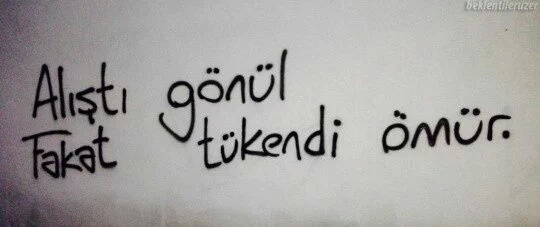 beklentileruzer
Alıştı gönül
Fakat tükendi ömür.